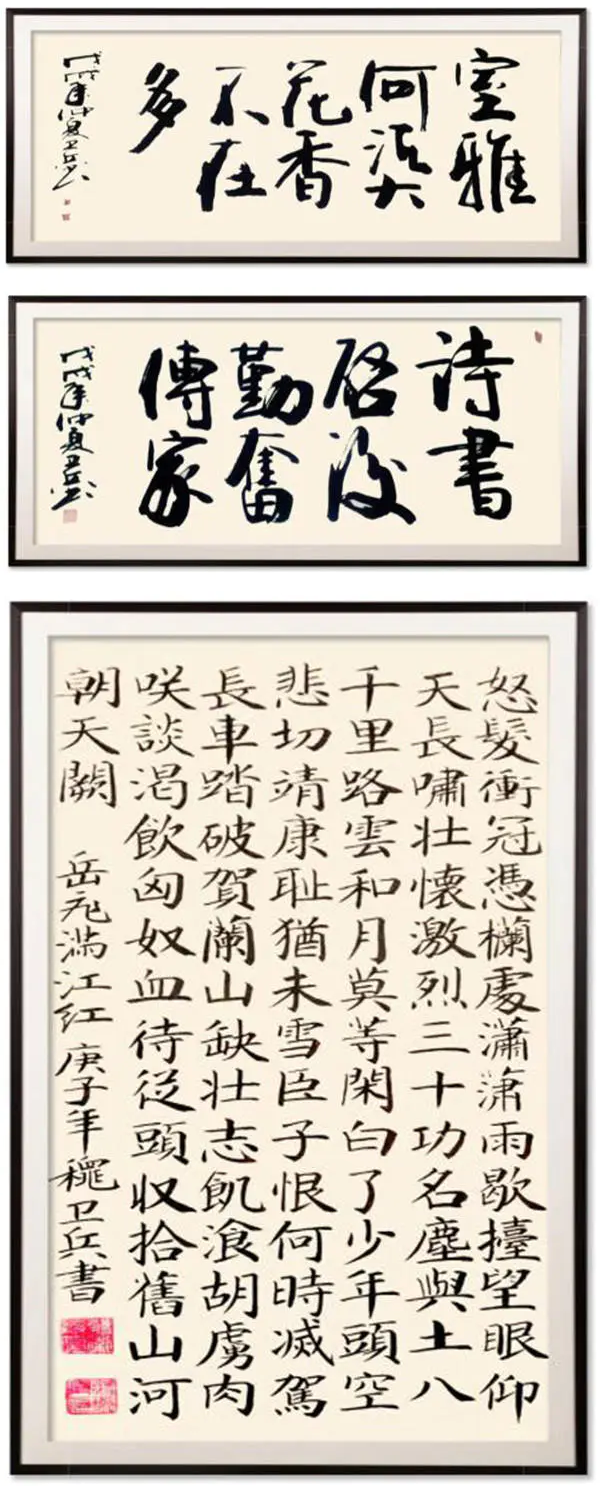 室雅
何須大
花香
不在
多
戊戌年仲夏卫兵书
詩書
啓後
勤奮
傳家
戊戌年仲夏卫兵书
怒髮衝冠憑欄處瀟瀟雨歇擡望眼仰
天長嘯壯懷激烈三十功名塵與土八
千里路雲和月莫等閑白了少年頭空
悲切靖康耻猶未雪臣子恨何時滅駕
長車踏破賀蘭山缺壯志飢湌胡虜肉
咲談渴飲匈奴血待從頭収拾舊山河
朝天闕 岳飛滿江红 庚子年穐卫兵書